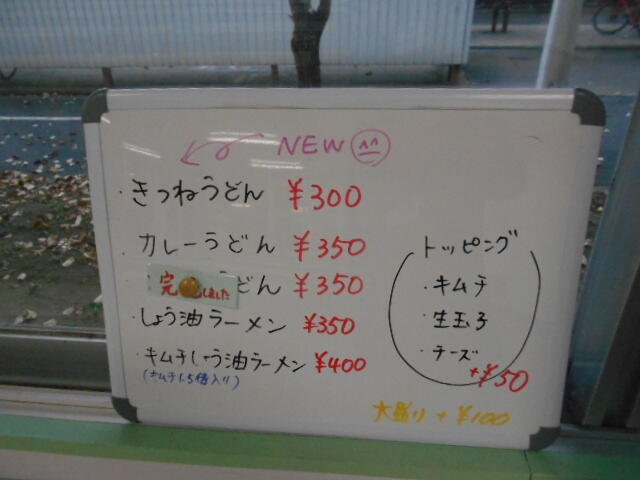 NEW
きつねうどん ¥300
カレーうどん ¥350
うどん ¥350
完 しました
しょう油ラーメン ¥350
キムチしょう油ラーメン ¥400
(キムチ1.5倍入り)
トッピング
・キムチ
・生玉子
・チーズ
+¥50
大盛り + ¥100